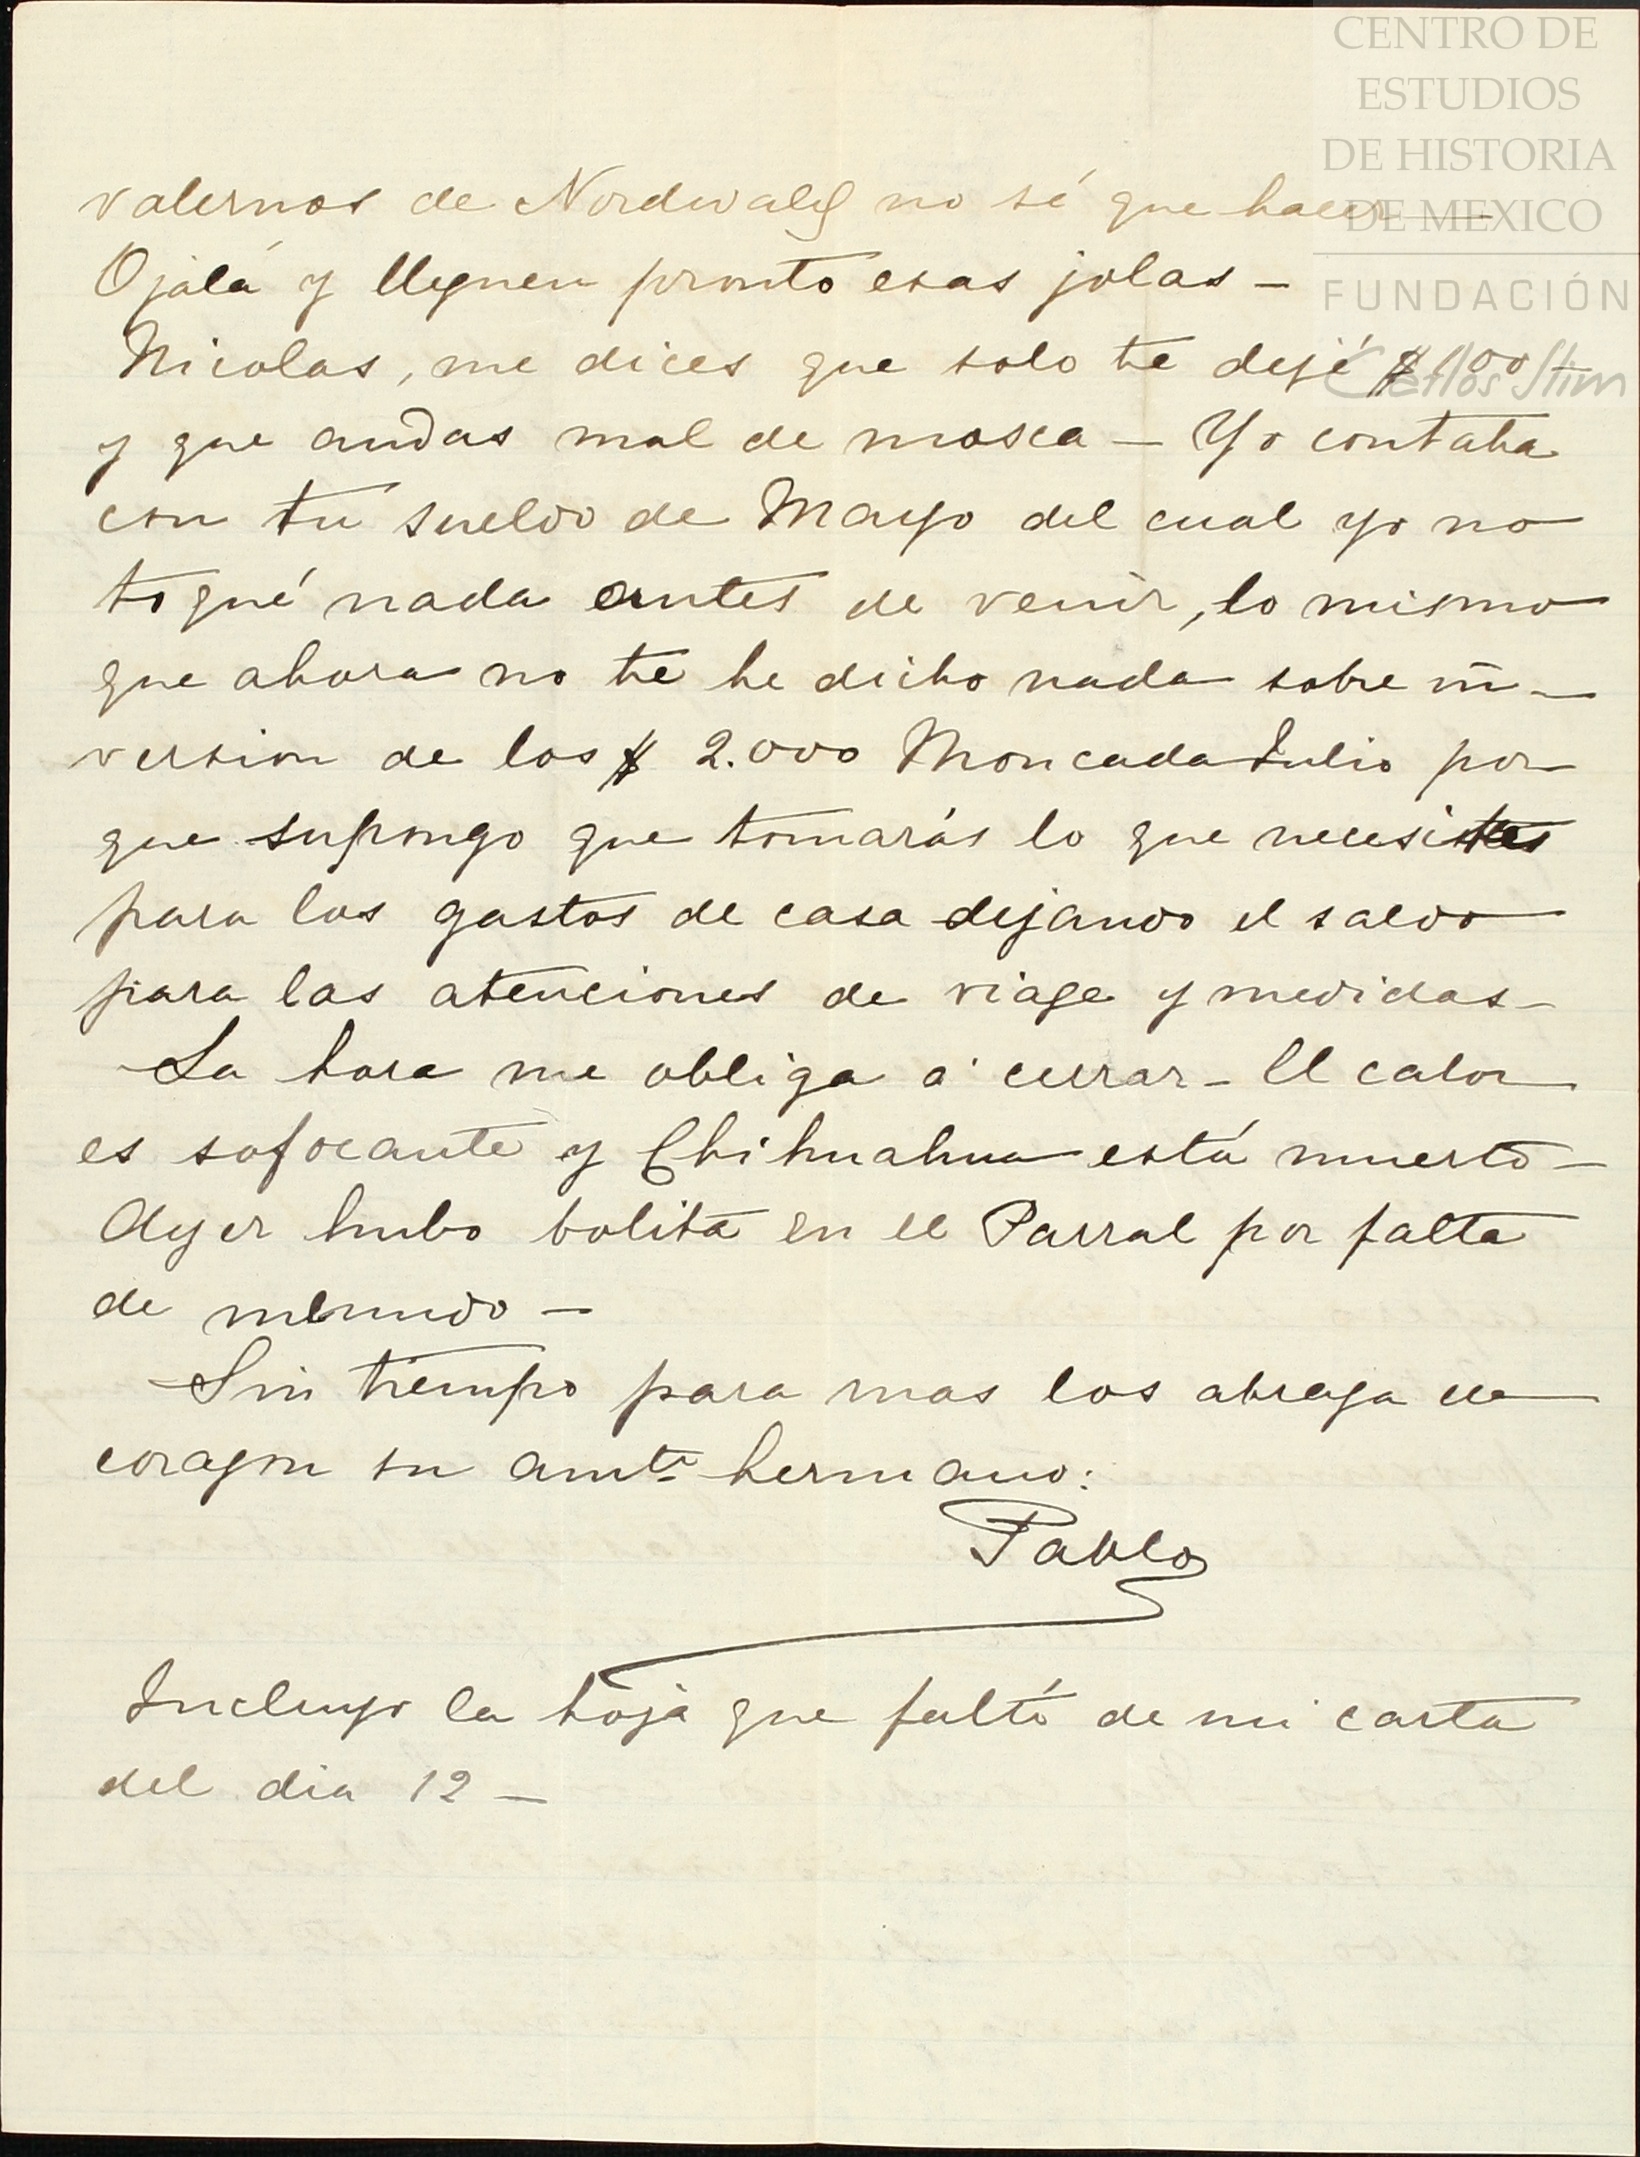 CENTRO DE
ESTUDIOS
DE HISTORIA
DE MEXICO
FUNDACIÓN
Carlos Slim
valernos de Nordwald no sé que hacer —
Ojalá y lleguen pronto esas jolas —
Nicolas, me dices que solo te dejé $100 —
y que andas mal de mosca — Yo contaba
con tu sueldo de Mayo del cual yo no
toqué nada antes de venir, lo mismo
que ahora no te he dicho nada sobre in-
version de los $ 2.000 Moncada Julio por
que supongo que tomarás lo que necesites
para los gastos de casa dejando el saldo
para las atenciones de viage y medidas —
La hora me obliga á cerrar — El calor
es sofocante y Chihuahua está muerto —
Ayer hubo bolita en el Parral por falta
de menudo —
Sin tiempo para mas los abraza de
corazon su amte hermano:
Pablo
Incluyo la hoja que faltó de mi carta
del dia 12 —